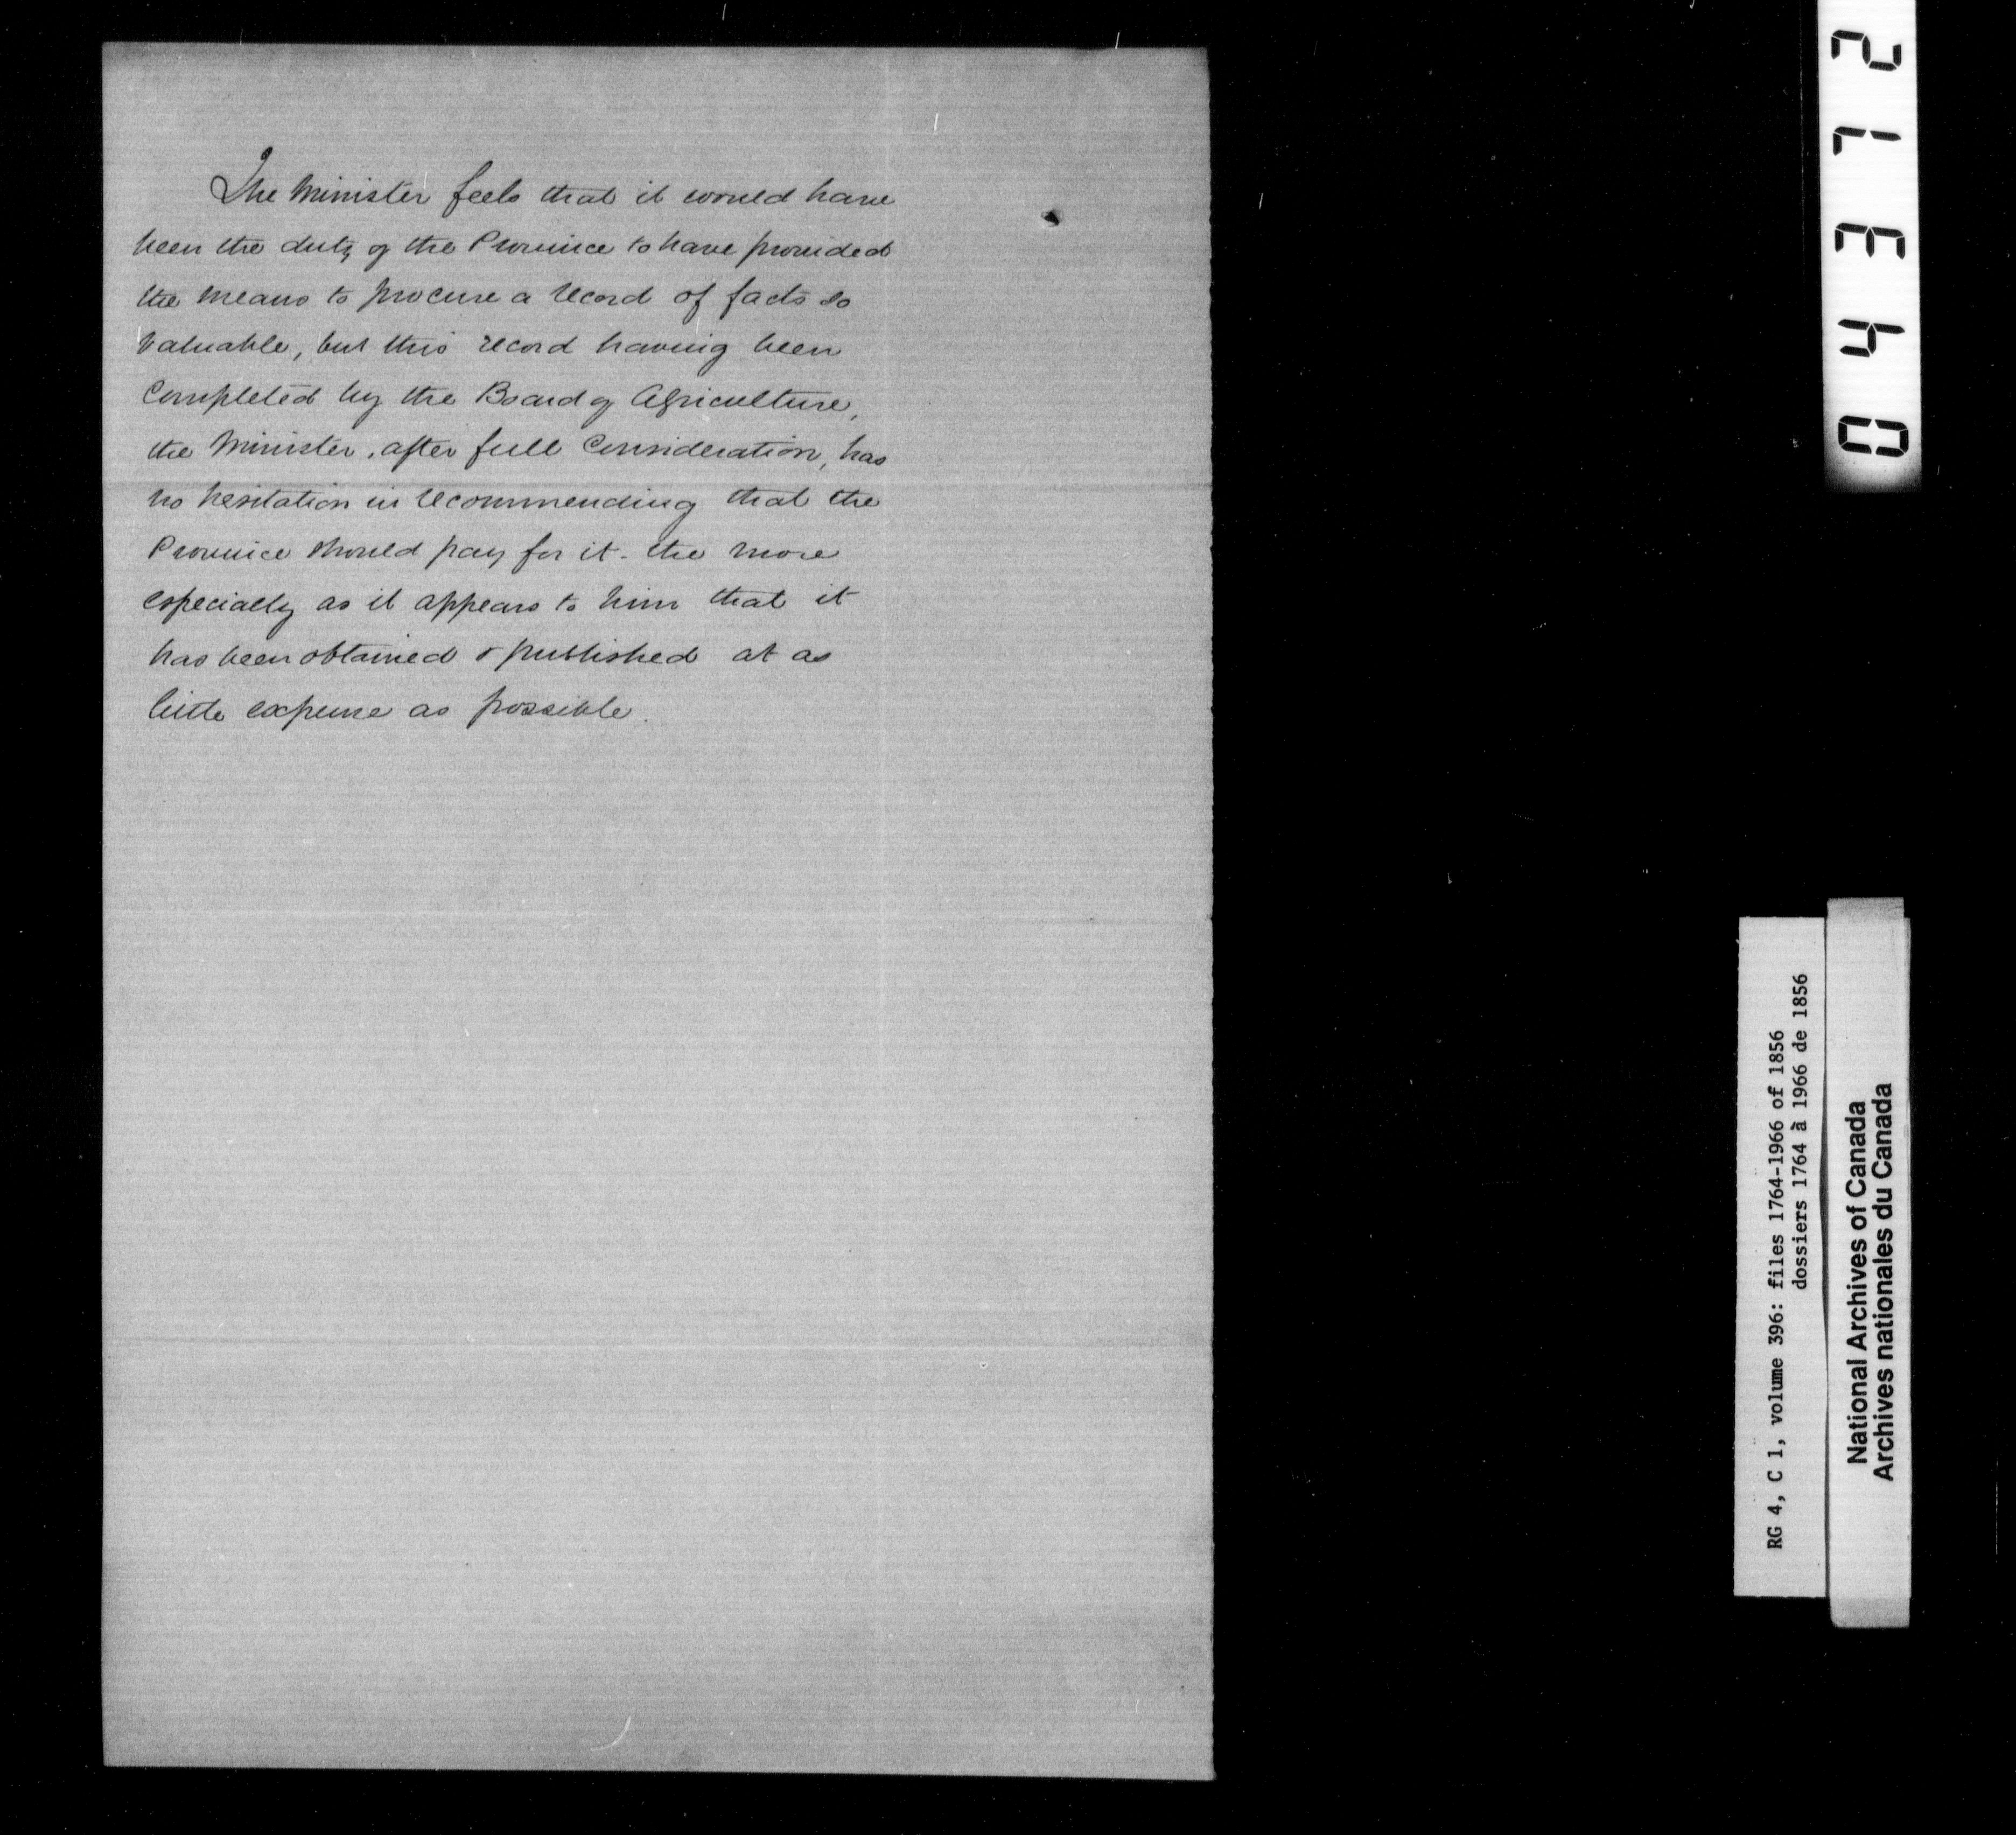 The Minister feels that it would have
been the duty of the Province to have provided
the means to procure a record of facts so
valuable, but this record having been
completed by the Board of Agriculture,
the Minister, after full Consideration, has
no hesitation in recommending that the
Province should pay for it - the more
especially as it appears to him that it
has been obtained & published at as
little expense as possible.
04312
RG 4, C 1, volume 396: files 1764-1966 of 1856
dossiers 1764 à 1966 de 1856
National Archives of Canada
Archives nationales du Canada